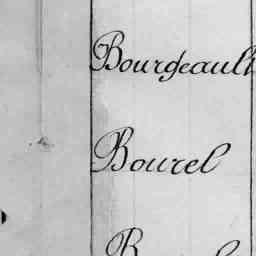 Bourgeault
Bourel